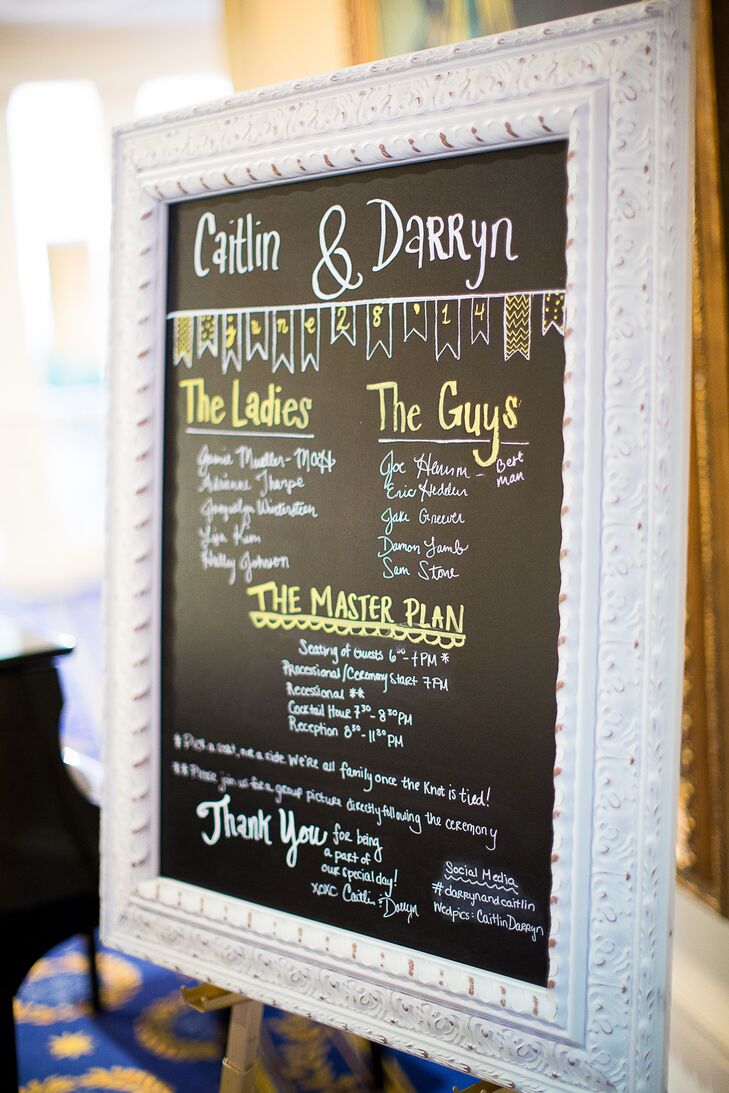 Caitlin & Darryn
june 28 '14
The Ladies
Jamie Mueller - MOH
Adrienne Tharpe
Jacquelyn Winterstein
Lisa Kim
Hailey Johnson
The Guys
Joe Hermm - Best man
Eric Hedden
Jake Greever
Damon Lamb
Sam Stone
THE MASTER PLAN
Seating of Guests 6³⁰-7PM *
Processional/Ceremony Start 7PM
Recessional **
Cocktail Hour 7³⁰-8³⁰PM
Reception 8³⁰-11³⁰PM
* Pick a seat, not a side. We're all family once the knot is tied!
** Please join us for a group picture directly following the ceremony
Thank You for being
a part of
our special day!
xoxo Caitlin & Darryn
Social Media
#darrynandcaitlin
Wedpics: CaitlinDarryn